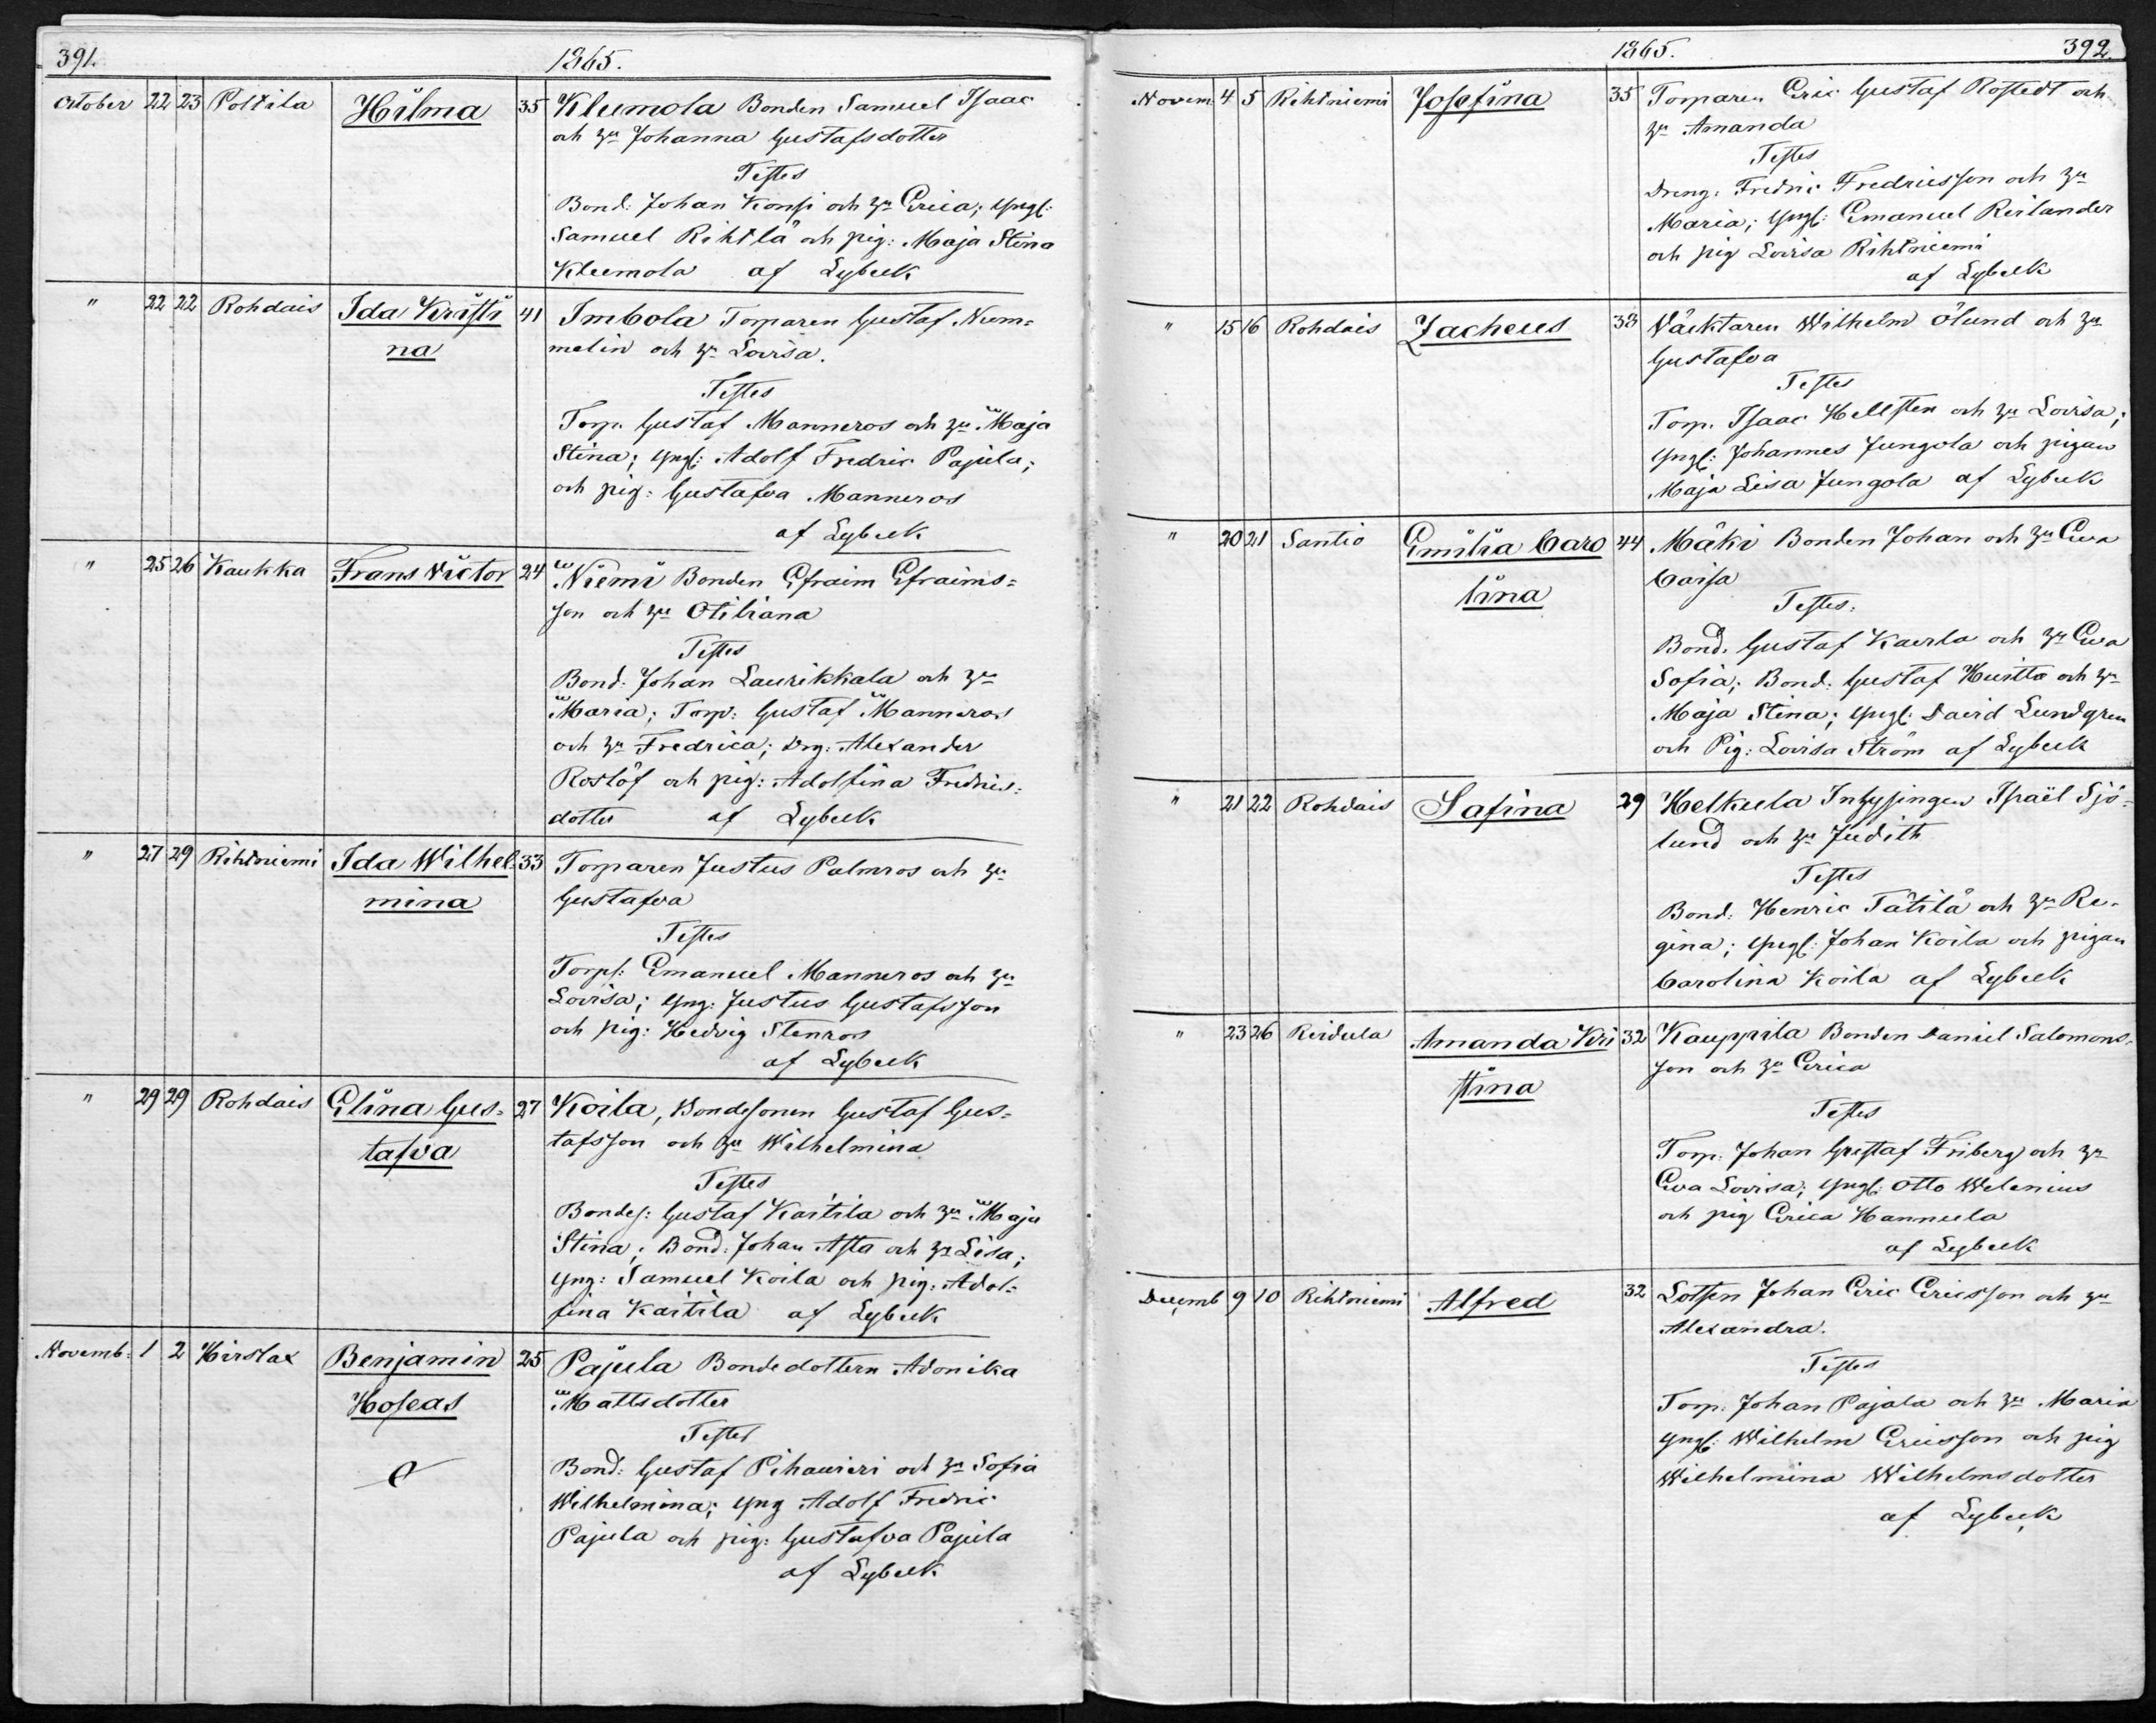 391.
1865.
October 22 23 Poltila Hilma 35 Kleemola Bonden Samuel Isaac
och hu Johanna Gustafsdotter
Testes
Bond: Johan Konsi och hu Erica; Yngl:
Samuel Rihtlä och pig: Maja Stina
Kleemola af Lybeck
" 22 22 Rohdais Ida Kristi 41 Imbola Torparen Gustaf Num=
na melin och hu Lovisa.
Testes
Torp. Gustaf Manneros och hu Maja
Stina; Yngl: Adolf Fredric Pajula;
och pig: Gustafva Manneros
af Lybeck
" 25 26 Kaukka Frans Victor 24 Niemi Bonden Efraim Efraims=
son och hu Otiliana
Testes
Bond: Johan Laurikkala och hu
Maria; Torp: Gustaf Manneros
och hu Fredrica; Drg: Alexander
Roslöf och pig: Adolfina Fredrics=
dotter af Lybeck
" 27 29 Rihtniemi Ida Wilhel- 33 Torparen Justus Palmros och hu
mina Gustafva
Testes
Torps: Emanuel Manneros och hu
Lovisa; Yng: Justus Gustafsson
och pig: Hedvig Stenros
af Lybeck
" 29 29 Rohdais Elina Gus- 27 Koila, Bondesonen Gustaf Gus=
tafva tafsson och hu Wilhelmina
Testes
Bondes: Gustaf Kaitila och hu Maja
Stina; Bond: Johan Asta och hu Lisa;
Yng: Samuel Koila och pig: Adol=
fina Kaitila af Lybeck
Novemb: 1 2 Hirslax Benjamin 25 Pajula Bondedottern Adonika
Hoseas Mattsdotter
Testes
Bond: Gustaf Pihavieri och hu Sofia
Wilhelmina; Yng Adolf Fredric
Pajula och pig: Gustafva Pajula
af Lybeck
1865.
392.
Novem: 4 5 Rihtniemi Josefina 35 Torparen Eric Gustaf Rostedt och
hu Amanda
Testes
Dreng: Fredric Fredricsson och hu
Maria; Yngl: Emanuel Reilander
och pig Lovisa Rihtniemi
af Lybeck
" 15 16 Rohdais Zacheus 38 Väcktaren Wilhelm Ölund och hu
Gustafva
Testes
Torp. Isaac Hellsten och hu Lovisa;
Yngl: Johannes Jungola och pigan
Maja Lisa Jungola af Lybeck
" 20 21 Santio Emilia Caro 44 Mäki Bonden Johan och hu Eva
lina Caisa
Testes:
Bond. Gustaf Kaurla och hu Eva
Sofia; Bond: Gustaf Huitto och hu
Maja Stina; Yngl: David Lundgren
och Pig: Lovisa Ström af Lybeck
" 21 22 Rohdais Safina 29 Helkula Inhysingen Israël Sjö=
lund och hu Judith
Testes
Bond: Henric Tätilä och hu Re=
gina; Yngl: Johan Koila och pigan
Carolina Koila af Lybeck
" 23 26 Reidula Amanda Kri 32 Kauppila Bonden Daniel Salomons=
stina son och hu Erica
Testes
Torp: Johan Gustaf Friberg och hu
Eva Lovisa; Yngl: Otto Welenius
och pig Erica Hannula
af Lybeck
Decemb 9 10 Rihtniemi Alfred 32 Lotsen Johan Eric Ericsson och hu
Alexandra.
Testes
Torp. Johan Pajala och hu Maria
Yngl: Wilhelm Ericsson och pig
Wilhelmina Wilhelmsdotter
af Lybeck